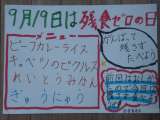 9月19日は残食ゼロの日
メニュー
ビーフカレーライス
キャベツのピクルス
れいとうみかん
ぎゅうにゅう
がんばって
残さず
たべよう